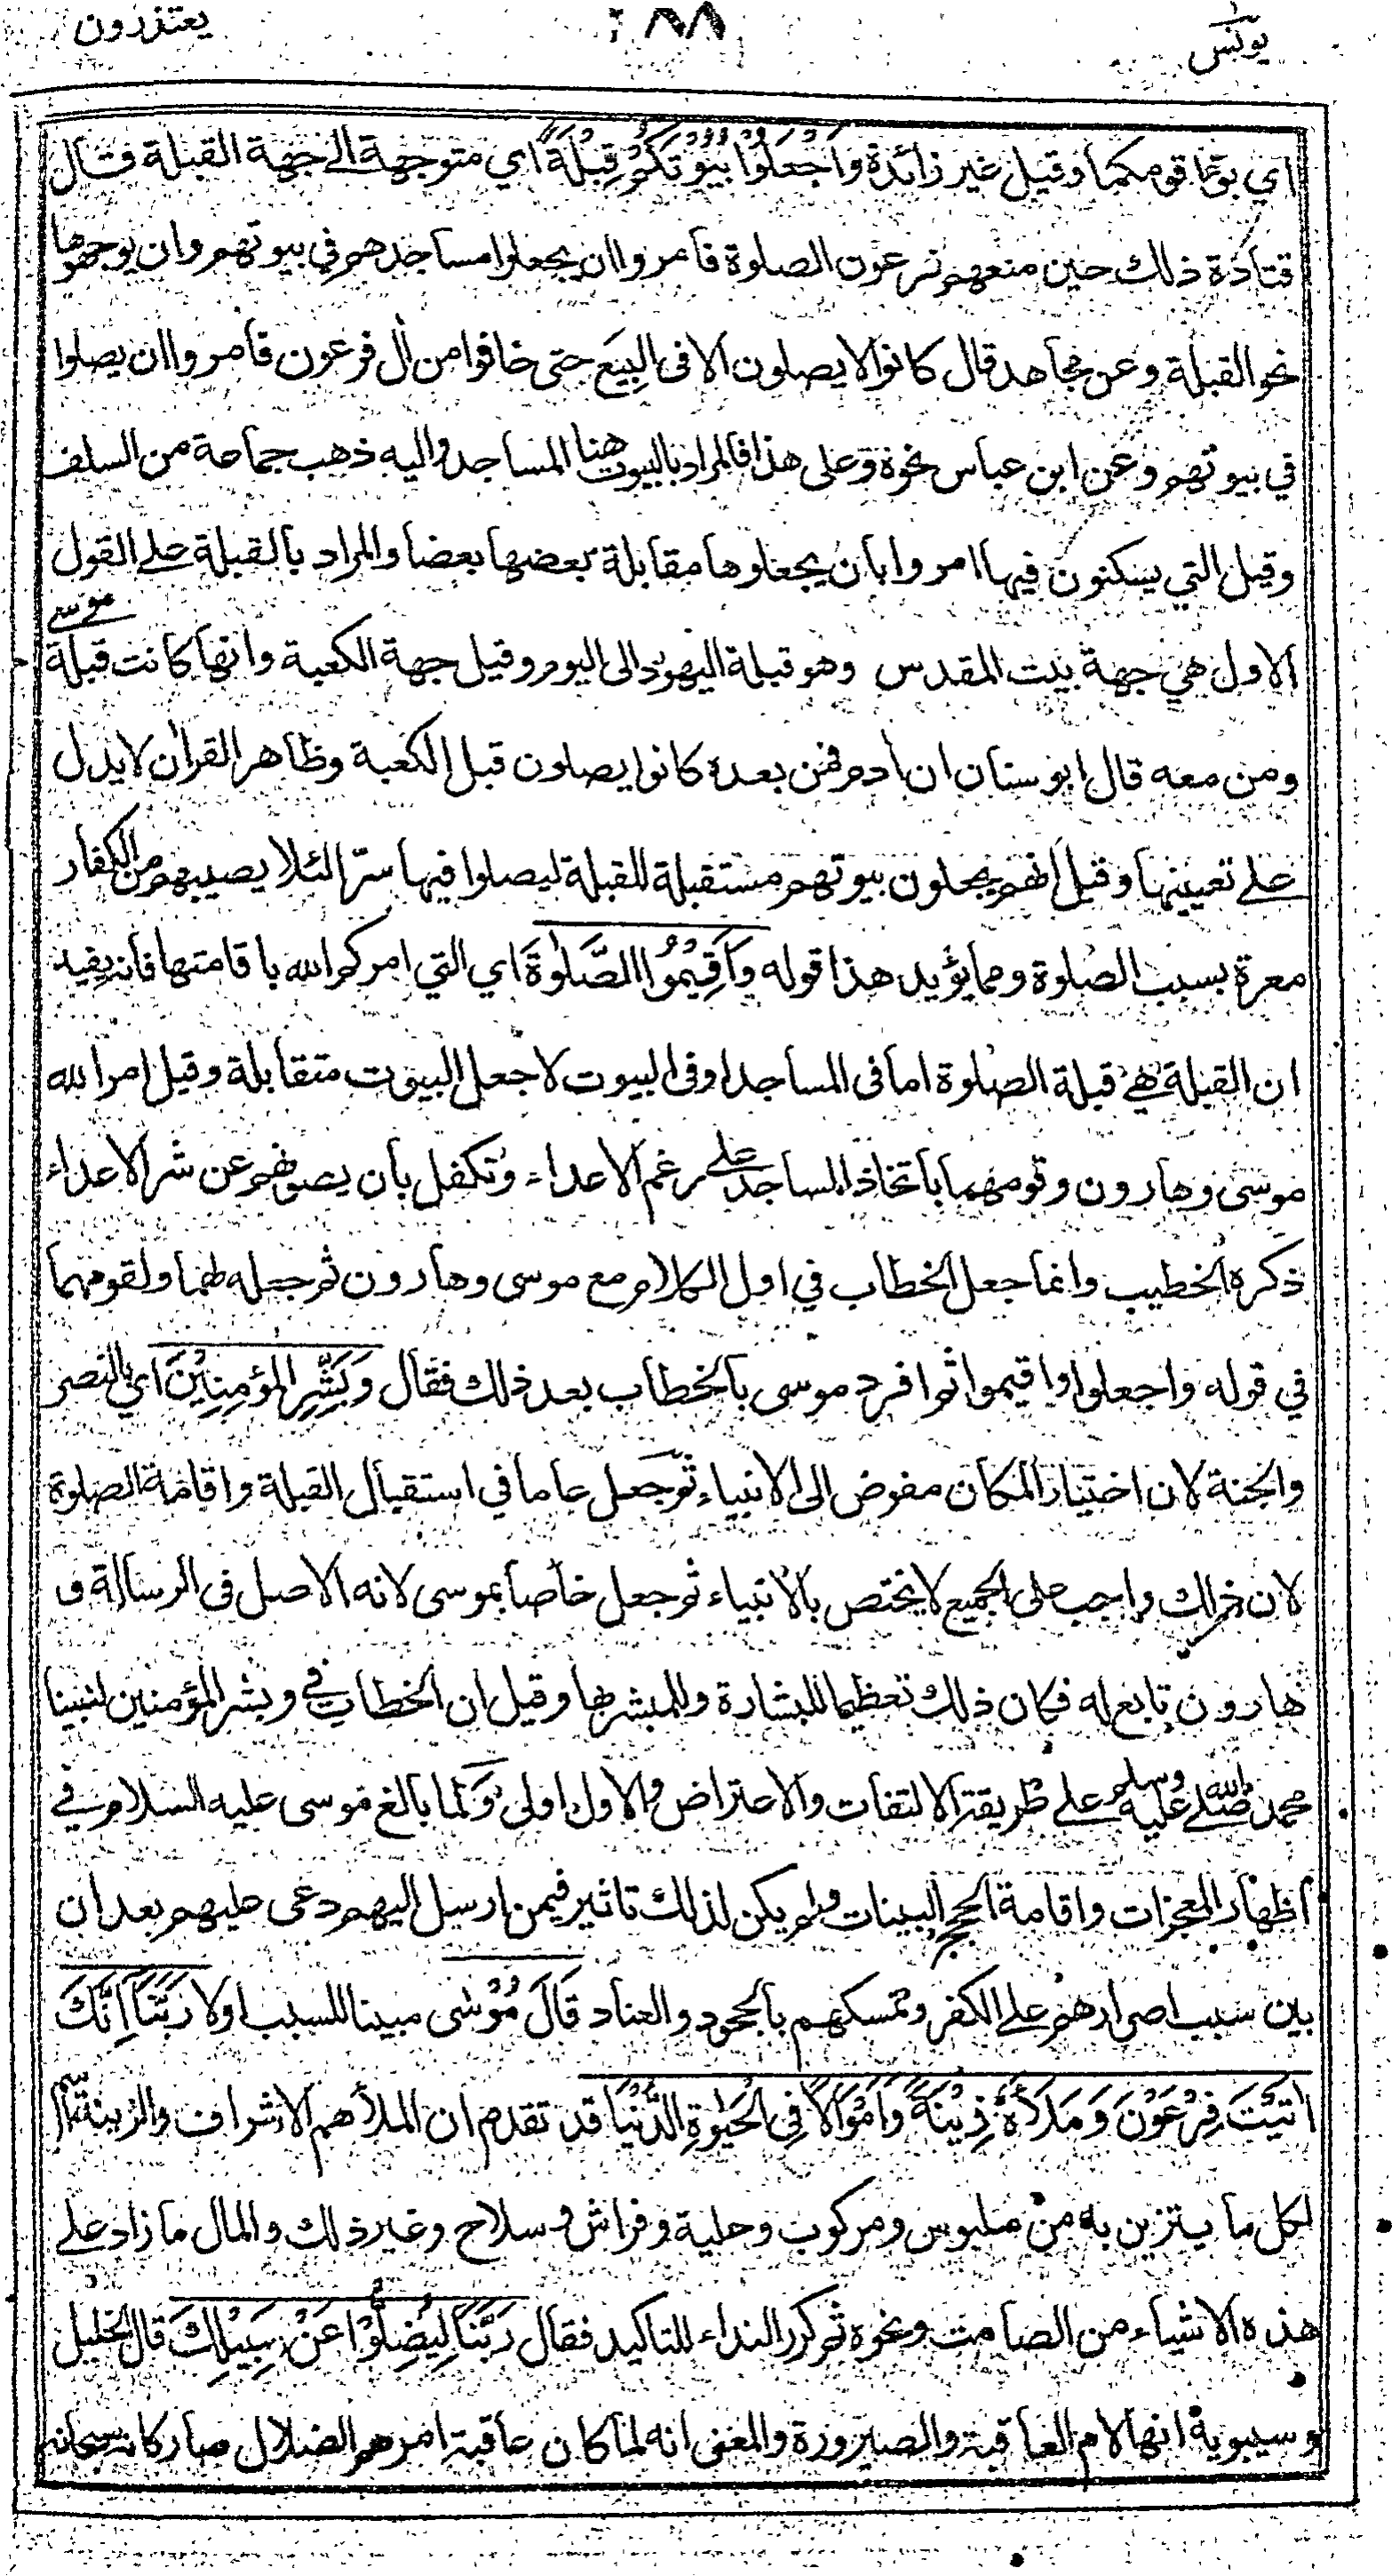 يونس ٢٨٨ يعتذرون
اي بوّءا قومكما وقيل غير زائدة وَاجْعَلُوْا بُيُوْتَكُمْ قِبْلَةً اي متوجهة الى جهة القبلة قال
قتادة ذلك حين منعهم فرعون الصلوة فأمروا ان يجعلوا مساجدهم في بيوتهم وان يوجهوها
نحو القبلة وعن مجاهد قال كانوا لا يصلون الا فى البِيَع حتى خافوا من اٰل فرعون فأمروا ان يصلوا
في بيوتهم وعن ابن عباس نحوه وعلى هذا فالمراد بالبيوت هنا المساجد واليه ذهب جماعة من السلف
وقيل التي يسكنون فيها امروا بان يجعلوها مقابلة بعضها بعضا والمراد بالقبلة على القول
الاول هي جهة بيت المقدس وهو قبلة اليهود الى اليوم وقيل جهة الكعبة وانها كانت قبلة موسى
ومن معه قال ابو سنان ان اٰدم فمن بعده كانوا يصلون قبل الكعبة وظاهر القراٰن لا يدل
على تعيينها وقيل انهم يجعلون بيوتهم مستقبلة للقبلة ليصلوا فيها سرّا لئلا يصيبهم من الكفار
معرة بسبب الصلوة ومما يؤيد هذا قوله وَاَقِيْمُوا الصَّلٰوةَ اي التي امركم الله باقامتها فانه يفيد
ان القبلة هي قبلة الصلوة اما فى المساجد او فى البيوت لا جعل البيوت متقابلة وقيل امر الله
موسى وهارون وقومهما باتخاذ المساجد على رغم الاعداء وتكفل بأن يصونهم عن شر الاعداء
ذكره الخطيب وانما جعل الخطاب في اول الكلام مع موسى وهارون ثم جعله لهما ولقومهما
في قوله واجعلوا واقيموا ثم افرد موسى بالخطاب بعد ذلك فقال وَبَشِّرِ الْمُؤْمِنِيْنَ اي بالنصر
والجنة لان اختيار المكان مفوض الى الانبياء ثم جعل عاما في استقبال القبلة واقامة الصلوة
لان ذلك واجب على الجميع لا يختص بالانبياء ثم جعل خاصا بموسى لانه الاصل فى الرسالة و
هارون تابع له فكان ذلك تعظيما للبشارة وللمبشر بها وقيل ان الخطاب في وبشر المؤمنين لنبينا
محمد صلى الله عليه وسلم على طريقة الالتفات والاعتراض والاول اولى ولما بالغ موسى عليه السلام في
اظهار المعجزات واقامة الحجج البينات ولم يكن لذلك تاثير فيمن ارسل اليهم دعى عليهم بعد ان
بين سبب اصرارهم على الكفر وتمسكهم بالجحود والعناد قَالَ مُوْسٰى مبينا للسبب اولا رَبَّنَا اِنَّكَ
اٰتَيْتَ فِرْعَوْنَ وَمَلَاَهٗ زِيْنَةً وَّاَمْوَالًا فِى الْحَيٰوةِ الدُّنْيَا قد تقدم ان الملأ هم الاشراف والزينة اسم
لكل ما يتزين به من ملبوس ومركوب وحلية وفراش وسلاح وغير ذلك والمال ما زاد على
هذه الاشياء من الصامت ونحوه ثم كرر النداء للتاكيد فقال رَبَّنَا لِيُضِلُّوْا عَنْ سَبِيْلِكَ قال الخليل
وسيبويه انها لام العاقبة والصيرورة والمعنى انه لما كان عاقبة امرهم الضلال صار كانه سبحانه